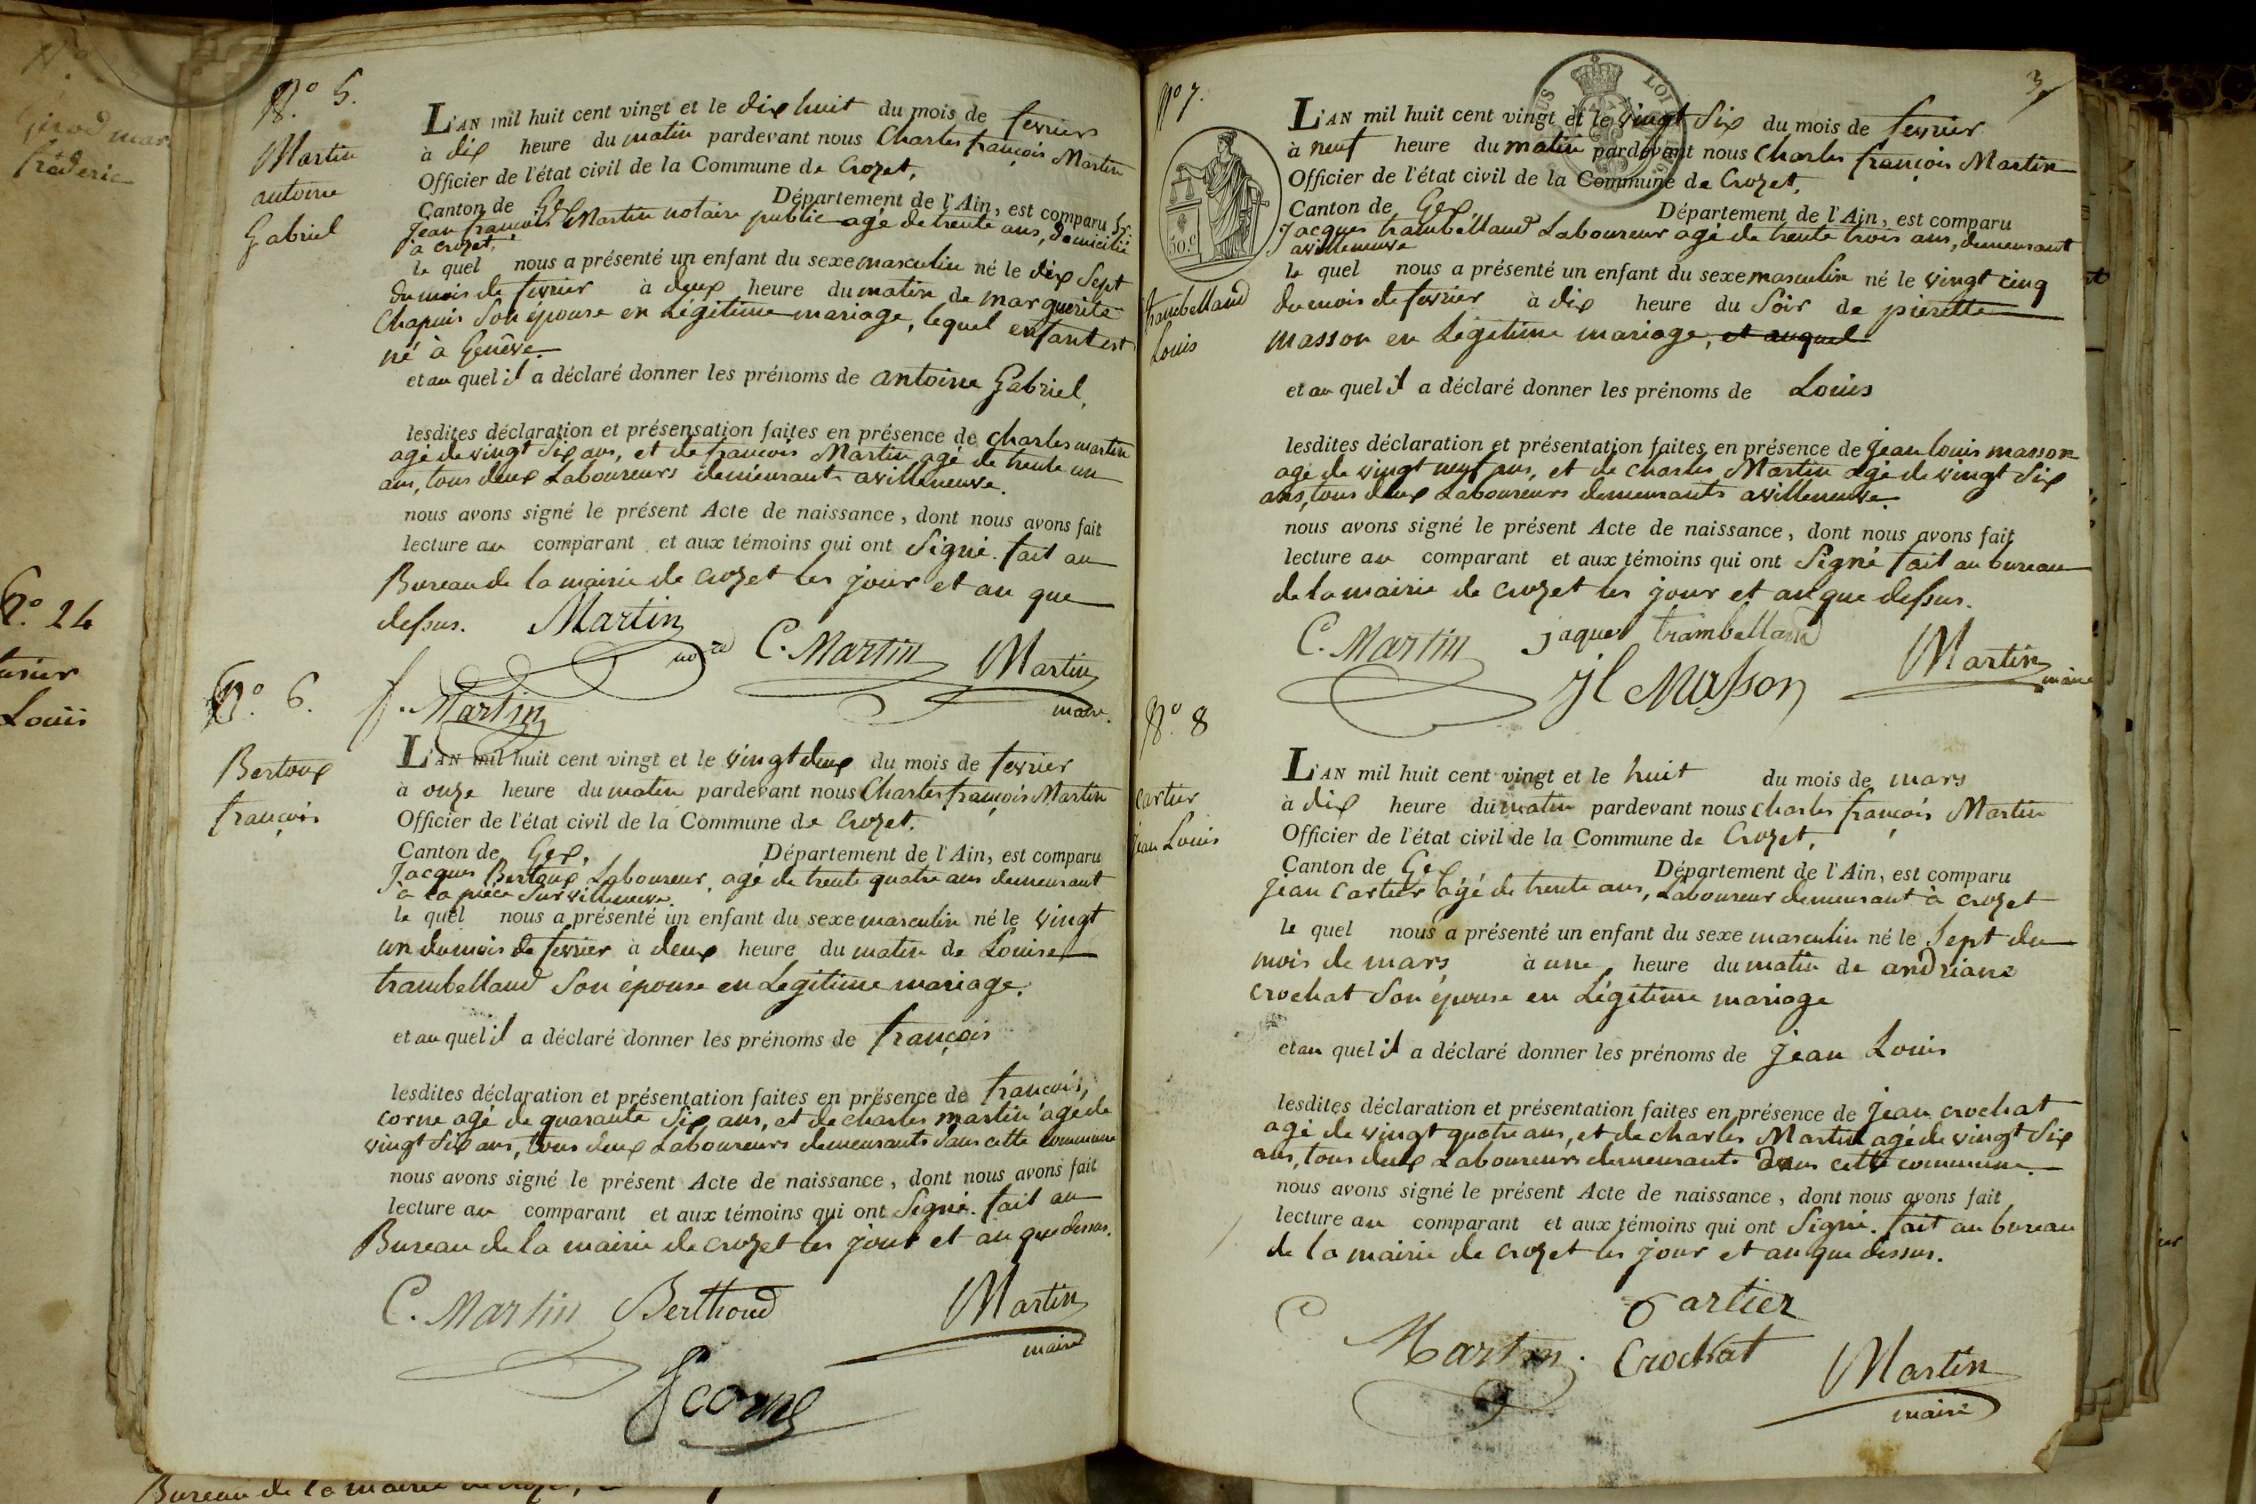 N.° 5.
Martin
antoine
Gabriel
L'AN mil huit cent vingt et le dix huit du mois de fevrier
à dix heure du matin pardevant nous Charles françois Martin
Officier de l'état civil de la Commune de Crozet,
Canton de Gex Département de l'Ain, est comparu Sr.
Jean françois Martin notaire public agé de trente ans, domicilié
à crozet,
le quel nous a présenté un enfant du sexe masculin né le dix Sept
du mois de fevrier à deux heure du matin de marguerite
Chapuis Son épouse en Légitime mariage, lequel enfant est
né à Genêve.
et au quel il a déclaré donner les prénoms de antoine Gabriel,
lesdites déclaration et présensation faites en présence de charles martin
agé de vingt Six ans, et de francois Martin agé de trente un
ans, tous deux Laboureurs demeurants a villeneuve.
nous avons signé le présent Acte de naissance, dont nous avons fait
lecture au comparant et aux témoins qui ont Signé. fait au
Bureau de la mairie de crozet les jour et an que
dessus. Martin
no.re C. Martin Martin
f. Martin maire.
N.° 6.
Bertoux
françois
L'AN mil huit cent vingt et le vingt deux du mois de fevrier
à onze heure du matin pardevant nous Charles françois Martin
Officier de l'état civil de la Commune de Crozet.
Canton de Gex, Département de l'Ain, est comparu
Jacques Bertoux Laboureur, agé de trente quatre ans demeurant
à la pièce Sur villeneuve.
le quel nous a présenté un enfant du sexe masculin né le vingt
un du mois de fevrier à deux heure du matin de Louise
trambelland Son épouse en Legitime mariage.
et au quel il a déclaré donner les prénoms de françois
lesdites déclaration et présentation faites en présence de francois,
corne agé de quarante Six ans, et de charles martin agé de
vingt Six ans, tous deux Laboureurs demeurants dans cette commune
nous avons signé le présent Acte de naissance, dont nous avons fait
lecture au comparant et aux témoins qui ont Signé. fait au
Bureau de la mairie de crozet les jour et an que dessus.
C. Martin Berthoud Martin
maire
f corne
N° 7.
3
trambelland
Louis
50 c
L'AN mil huit cent vingt et le vingt Six du mois de fevrier
à neuf heure du matin pardevant nous Charles françois Martin
Officier de l'état civil de la Commune de Crozet,
Canton de Gex, Département de l'Ain, est comparu
Jacques trambelland Laboureur agé de trente trois ans, demeurant
a villeneuve
le quel nous a présenté un enfant du sexe masculin né le vingt cinq
du mois de fevrier à dix heure du Soir de pierette
masson en Légitime mariage, et auquel
et au quel il a déclaré donner les prénoms de Louis
lesdites déclaration et présentation faites en présence de jean louis masson
agé de vingt neuf ans, et de charles Martin agé de vingt Six
ans, tous deux Laboureurs demeurants a villeneuve.
nous avons signé le présent Acte de naissance, dont nous avons fait
lecture au comparant et aux témoins qui ont Signé fait au bureau
de la mairie de crozet les jour et an que dessus.
C. Martin jaques trambelland Martin
maire
jl Masson
N.° 8
cartier
jean Louis
L'AN mil huit cent vingt et le huit du mois de mars
à dix heure du matin pardevant nous charles françois Martin
Officier de l'état civil de la Commune de Crozet,
Canton de Gex Département de l'Ain, est comparu
jean cartier âgé de trente ans, Laboureur demeurant à crozet
le quel nous a présenté un enfant du sexe masculin né le Sept du
mois de mars à une heure du matin de andriane
crochat Son épouse en Légitime mariage
et au quel il a déclaré donner les prénoms de jean Louis
lesdites déclaration et présentation faites en présence de jean crochat
agé de vingt quatre ans, et de charles Martin agé de vingt Six
ans, tous deux Laboureurs demeurants dans cette commune.
nous avons signé le présent Acte de naissance, dont nous avons fait
lecture au comparant et aux témoins qui ont Signé. fait au bureau
de la mairie de crozet les jour et an que dessus.
cartier
C Martin. Crochat Martin
maire
N.°
Girod mar
fréderic
N.° 24
Louis
Bureau de la mairie de crozet,